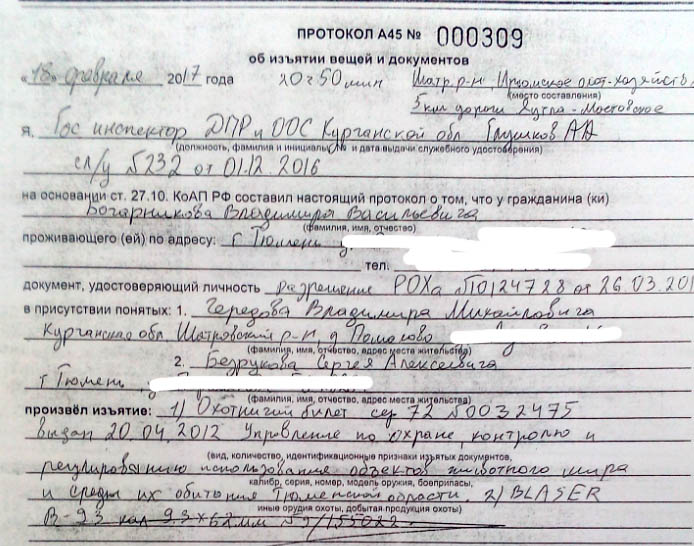 ПРОТОКОЛ А45 № 000309
об изъятии вещей и документов
«18» февраля 2017 года 20 г 50 мин Шатр. р-н
(место составления)
5 км дороги Яутла - Мостовское
Я, Гос инспектор ДПР и ООС Курганской обл Глушков АА
(должность, фамилия и инициалы, № и дата выдачи служебного удостоверения)
сл/у №232 от 01.12.2016
на основании ст. 27.10. КоАП РФ составил настоящий протокол о том, что у гражданина (ки)
Владимира Васильевича
(фамилия, имя, отчество)
проживающего (ей) по адресу: г Тюмень
тел.
документ, удостоверяющий личность разрешение РОХа №10124728 от 26.03.201
в присутствии понятых: 1. Чередова Владимира Михайловича
Курганская обл. Шатровский р-н, д
(фамилия, имя, отчество, адрес места жительства)
2. Безрукова Сергея Алексеевича
г Тюмень
(фамилия, имя, отчество, адрес места жительства)
произвёл изъятие: 1) Охотничий билет сер 72 №0032475
выдан 20.04.2012 Управление по охране, контролю и
(вид, количество, идентификационные признаки изъятых документов,
регулированию использования объектов животного мира
калибр, серия, номер, модель оружия, боеприпасы,
и среды их обитания Тюменской области. 2) BLASER
иные орудия охоты, добытая продукция охоты)
В-93 кал 9.3×62мм №9/155022